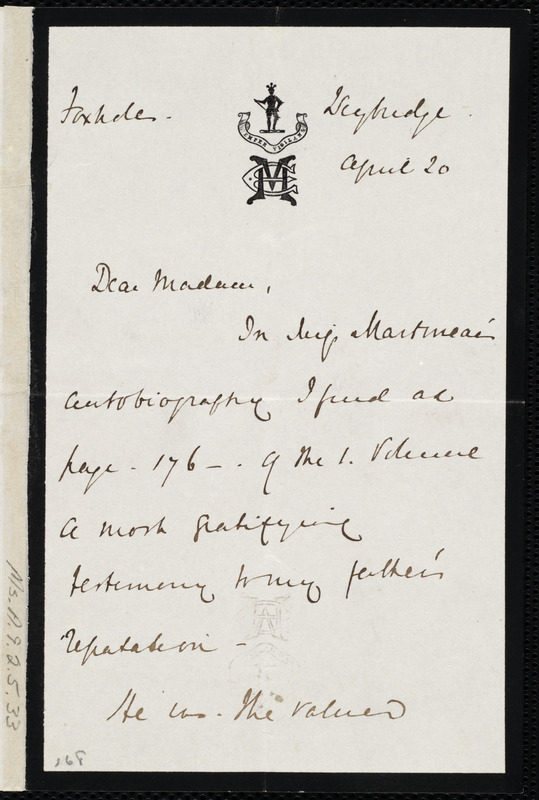 Foxholes. Weybridge.
SEMPER VIGILANS
April 20
Dear Madam,
In Miss Martineau's
autobiography I find at
page - 176 - . of the 1. Volume
a most gratifying
testimony to my father's
reputation -
He was . the valued
168
Ms.A.9.2.5.33